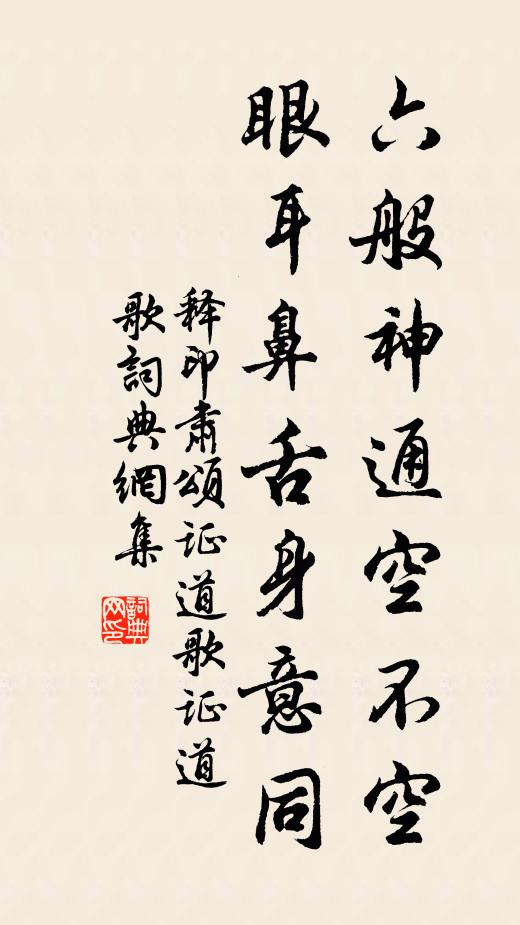 六般神通空不空
眼耳鼻舌身意同
释印肃颂证道歌证道
歌詞典網集
詞典
网印